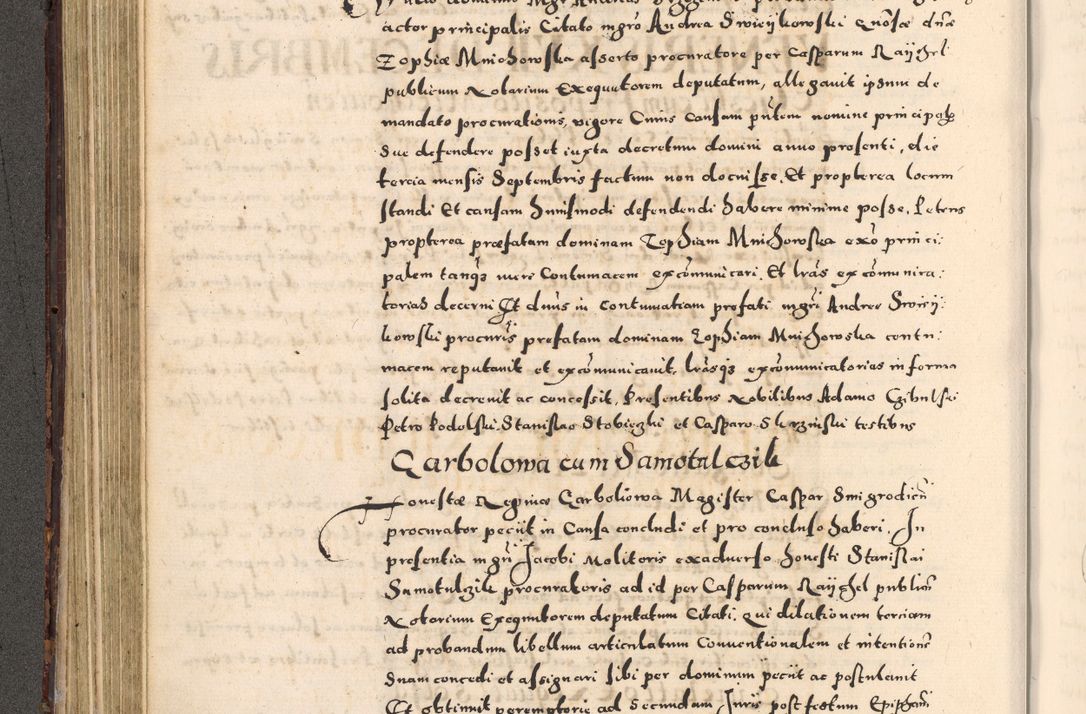 actor principalis Citato mgro Andrea Swieykowski exosae dnae
Zophiae Mnichowska asserto procuratore per Casparum Rayghel
publicum Notarium Exequutorem deputatum, allegavit ipsum de
mandato procurationis, vigore Cuius Causam pntem nomine principalis
sue defendere posset iuxta decretum domini anno presenti, die
tercia mensis Septembris factum non docuisse, Et propterea locum
standi Et causam huiusmodi defendendi habere minime posse, Petens
propterea praefatam dominam Zophiam Mnichowska exo princi:
palem tanqs vere Contumacem excomunicari, Et lras excomunica:
torias decerni Et dnus in contumatiam prefati mgri Andree Swiey
kowski procuris prefatam dominam Zophiam Mnichowska contu:
macem reputavit et excomunicavit, lrasqs excomunicatorias in forma
solita decrevit ac concessit, Presentibus Nobilibus Adamo
Petro Podolski, Stanislao et Casparo testibus
Garbolowa cum Samotulczik
Honestae Reginae Garboliowa Magister Caspar Smigrodicn
procurator peciit in Causa concludi et pro concluso haberi, In
presentia mgri Jacobi Molitoris exadverso honesti Stanislai
Samotulczik procuratoris ad id per Casparum Rayghel publicu
Notarium Exequutorem deputatum Citati, qui dilationem terciam
ad probandum libellum articulatum Conventionalem et intentione
suam concedi et assignari sibi per dominum peciit ac postulavit
Et obtinuit peremptorie ad secundam Juris post festum Epiphani